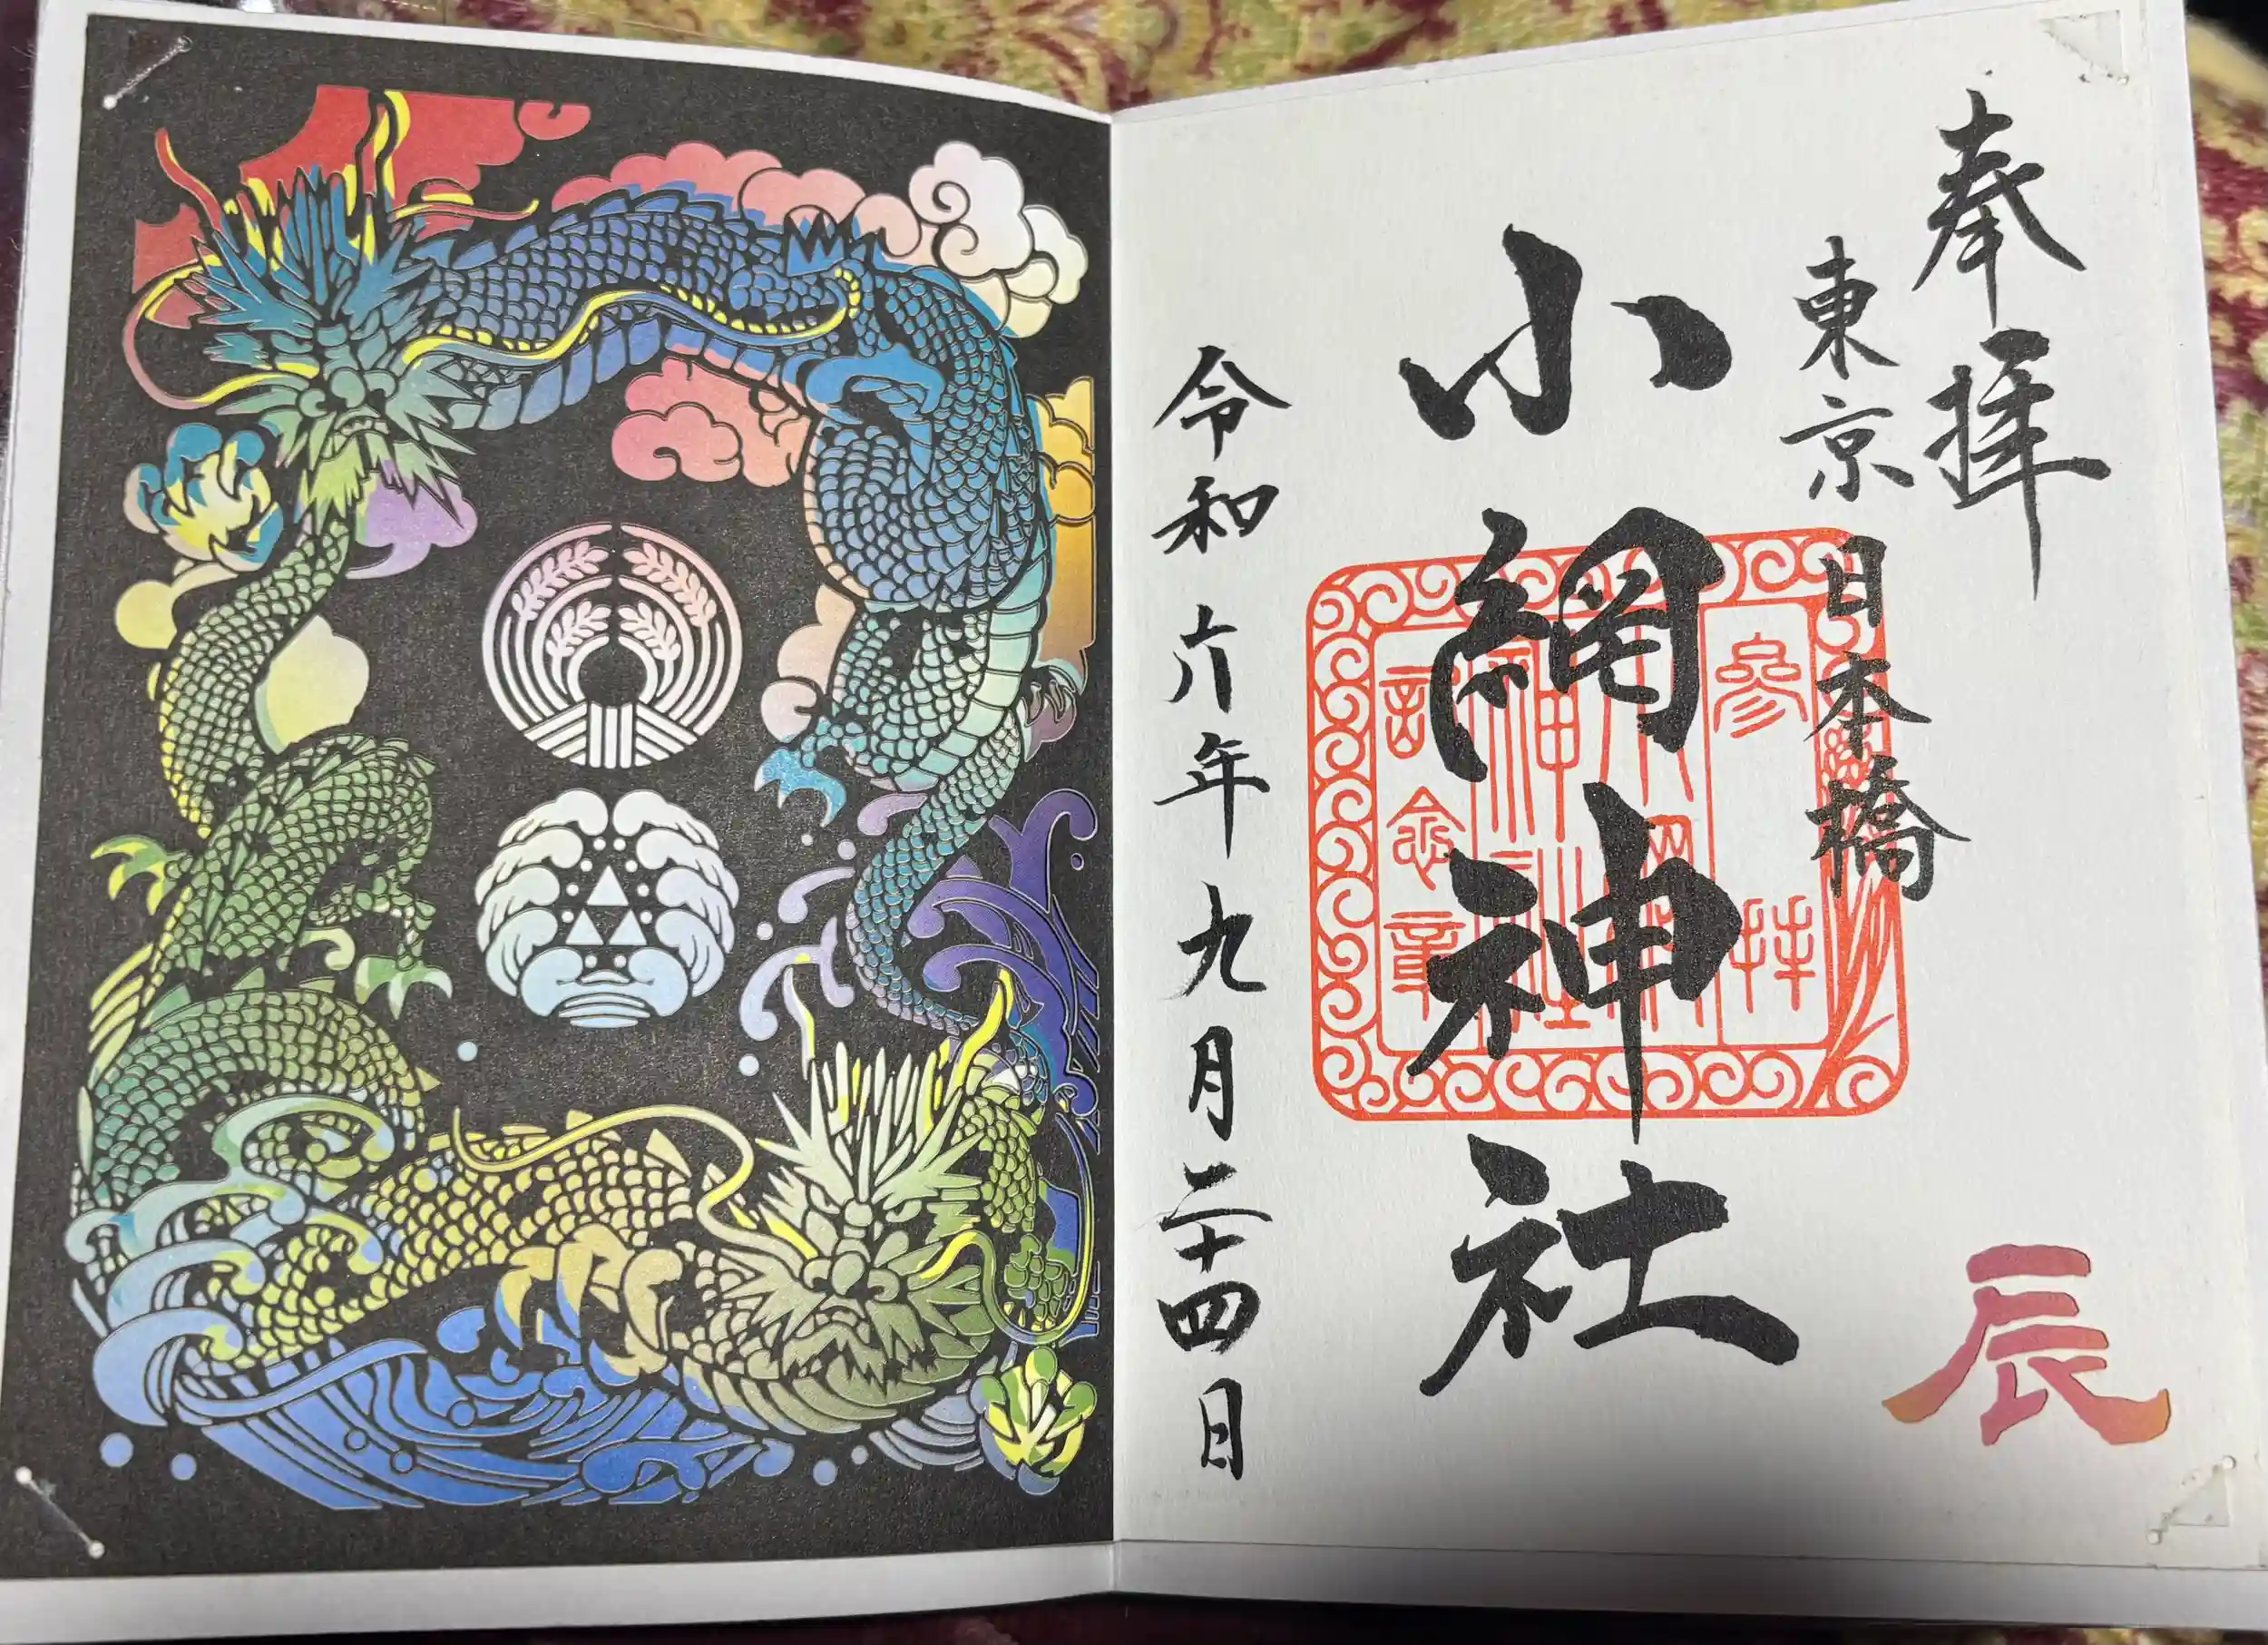 奉拝
東京
日本橋
小網神社
参拝
小網
神社
記念章
令和六年九月二十四日
辰